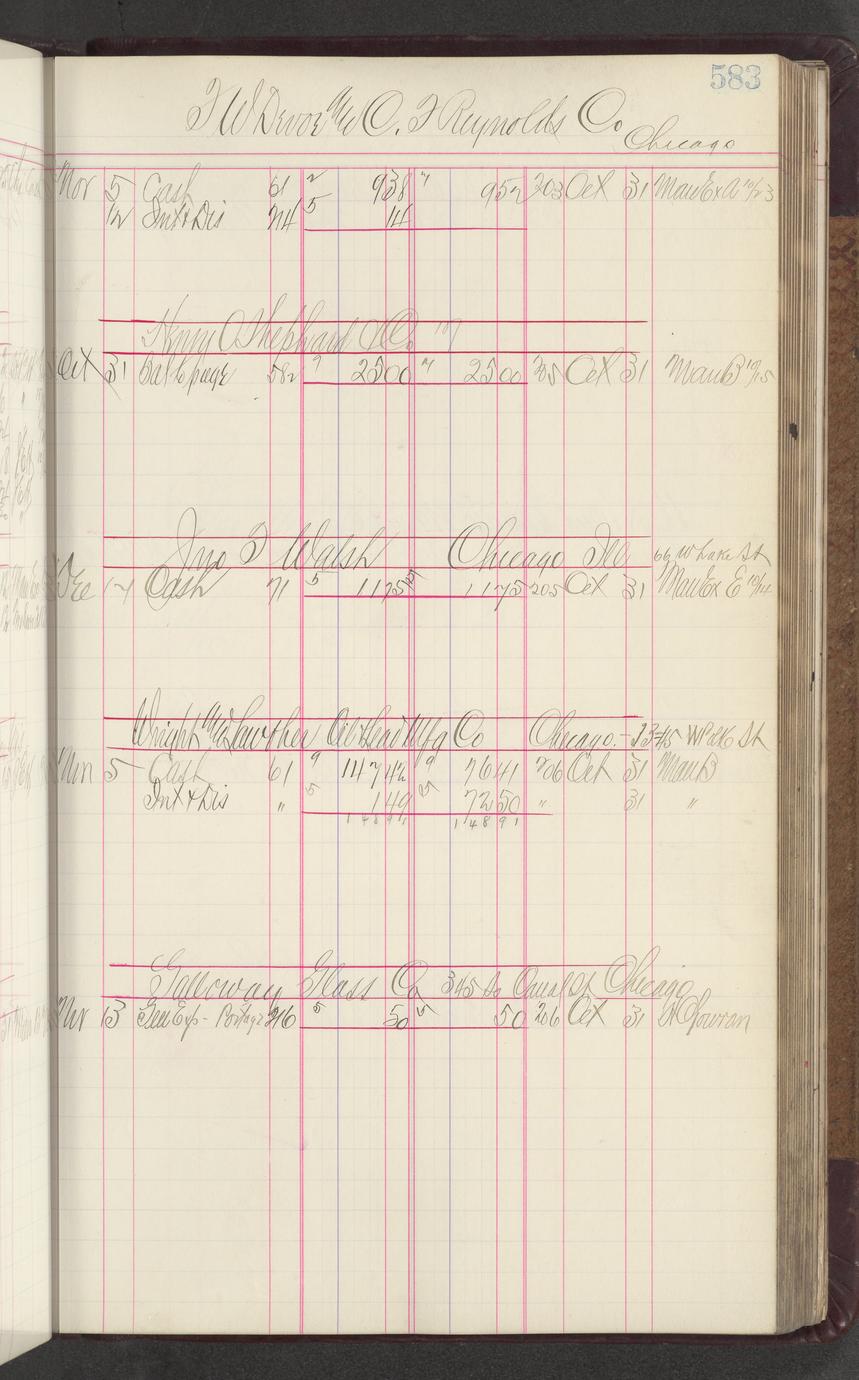 583
F W Devoe & C. T Reynolds Co Chicago
Nov 5 Cash 61 2 938 " 952 203 Oct 31 Manu Ex A 10/23
12 Int & Dis 214 5 14
Henry O Shephard & Co
Oct 31 Bal to page 582 9 2500 " 2500 205 Oct 31 Manu B 10/15
Jno F Walsh Chicago Ill 66 W Lake St
Dec 17 Cash 71 5 1175 1175 205 Oct 31 Manu Ex E 10/14
Wright & Lawther Oil & Lead Mfg Co Chicago. - 1345 W Polk St
Nov 5 Cash 61 9 14742 9 7641 206 Oct 31 Manu B
Int & Dis " 5 149 5 7250 " 31 "
14891 14891
Galloway Glass Co 345 So Canal St Chicago
Nov 13 Gen Exp - Portage 216 5 50 5 50 206 Oct 31